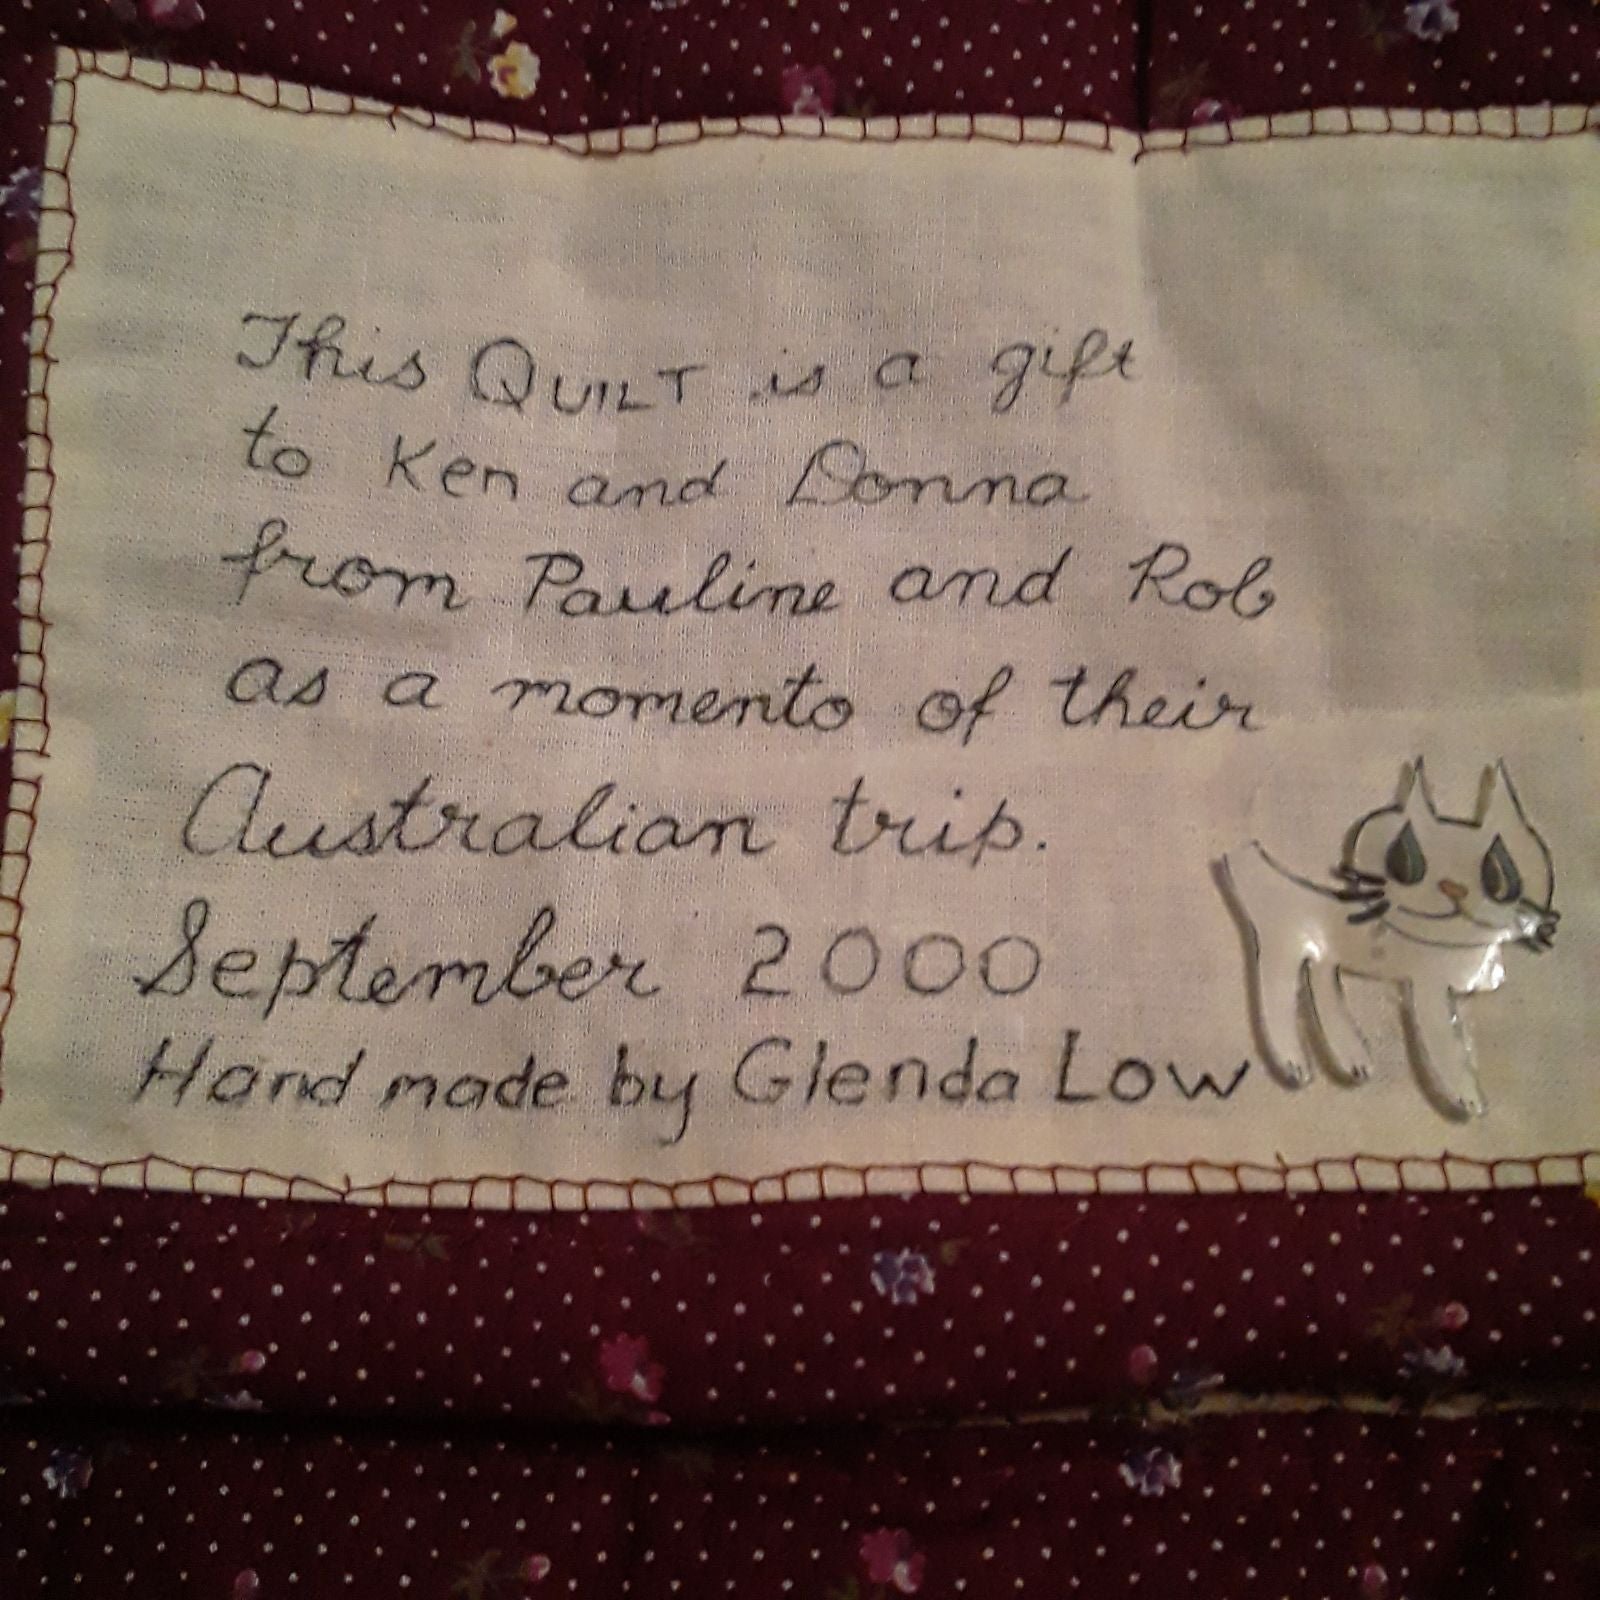 This QUILT is a gift
to Ken and Donna
from Pauline and Rob
as a momento of their
Australian trip.
September 2000
Hand made by Glenda Low